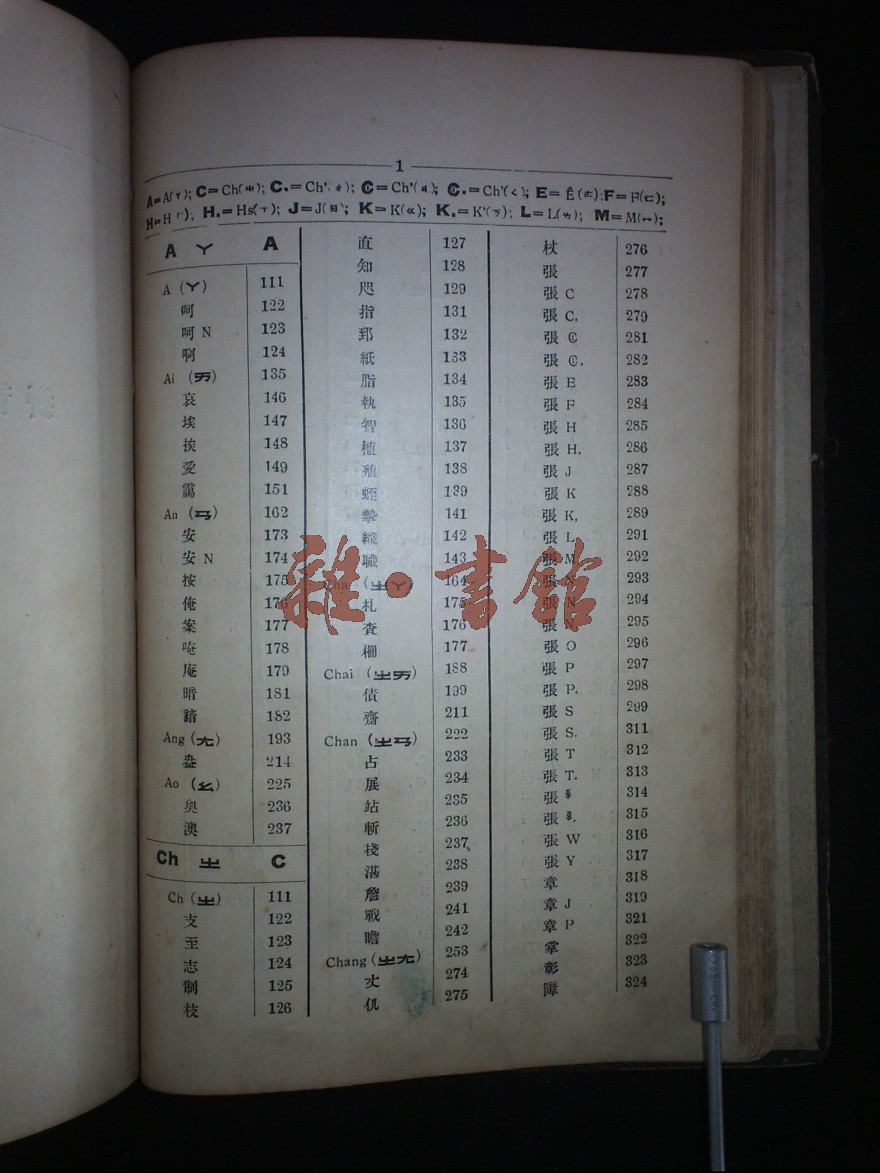 1
A=A(ㄚ); C=Ch(ㄓ); C.=Ch'(ㄔ); ₵=Ch'(ㄐ); ₵.=Ch'(ㄑ); E=Ê(ㄜ); F=F(ㄈ);
H=H(ㄏ); H.=Hs(ㄒ); J=J(ㄖ); K=K(ㄍ); K.=K'(ㄎ); L=L(ㄌ); M=M(ㄇ);
A ㄚ A
A (ㄚ) 111
呵 122
呵 N 123
啊 124
Ai (ㄞ) 135
哀 146
埃 147
挨 148
愛 149
靄 151
An (ㄢ) 162
安 173
安 N 174
按 175
俺 176
案 177
唵 178
庵 179
暗 181
諳 182
Ang (ㄤ) 193
盎 214
Ao (ㄠ) 225
奥 236
澳 237
Ch ㄓ C
Ch (ㄓ) 111
支 122
至 123
志 124
制 125
枝 126
直 127
知 128
咫 129
指 131
郅 132
紙 133
脂 134
執 135
智 136
植 137
殖 138
蛭 139
摯 141
織 142
職 143
Cha (ㄓㄚ) 164
札 175
查 176
柵 177
Chai (ㄓㄞ) 188
債 199
齋 211
Chan (ㄓㄢ) 222
占 233
展 234
站 235
斬 236
棧 237
湛 238
詹 239
戰 241
瞻 242
Chang (ㄓㄤ) 253
丈 274
仉 275
杖 276
張 277
張 C 278
張 C. 279
張 ₵ 281
張 ₵. 282
張 E 283
張 F 284
張 H 285
張 H. 286
張 J 287
張 K 288
張 K. 289
張 L 291
張 M 292
張 N 293
張 N 294
張 N 295
張 O 296
張 P 297
張 P. 298
張 S 299
張 S. 311
張 T 312
張 T. 313
張 314
張 315
張 W 316
張 Y 317
章 318
章 J 319
章 P 321
掌 322
彰 323
障 324
雜·書館